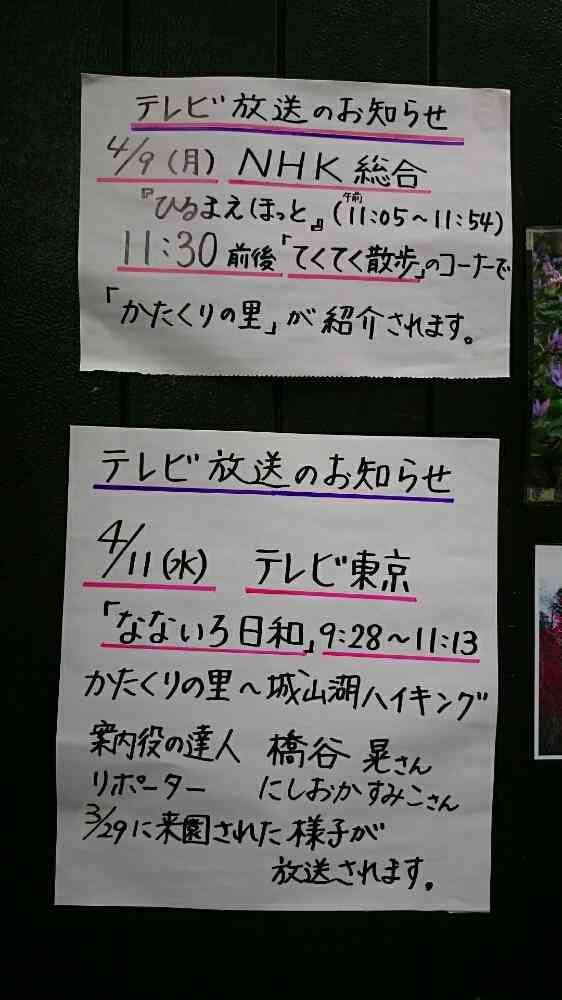 テレビ放送のお知らせ
4/9(月) NHK 総合
午前
『ひるまえほっと』(11:05～11:54)
11:30 前後「てくてく散歩」のコーナーで
「かたくりの里」が紹介されます。
テレビ放送のお知らせ
4/11(水) テレビ東京
「なないろ日和」9:28～11:13
かたくりの里～城山湖ハイキング
案内役の達人 橋谷 晃さん
リポーター にしおかすみこさん
3/29に来園された様子が
放送されます。